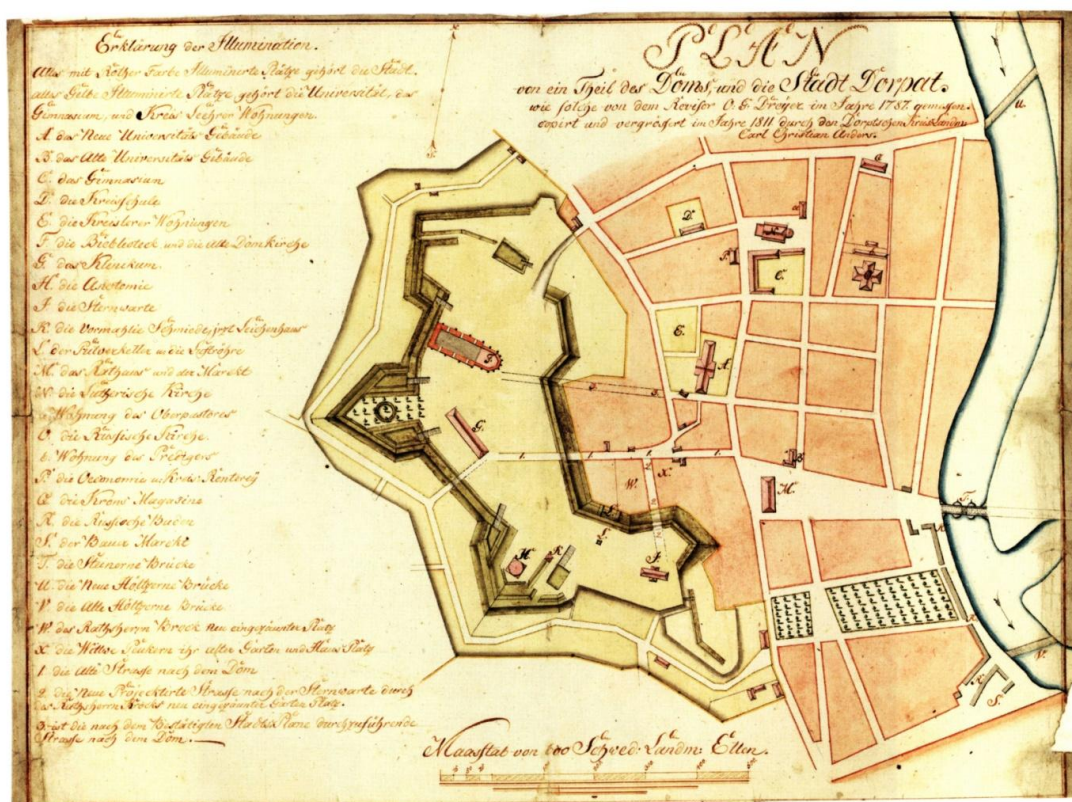 Erklärung der Illumination.
Alles mit Rother Farbe Illuminierte Plätze gehört die Stadt.
alles Gelbe Illuminierte Plätze gehört die Universität, das
Gimnasium, und Kreis Lehrer Wohnungen.
A. das Neue Universitäts Gebäude
B. das Alte Universitäts Gebäude
C. das Gimnasium
D. die Kreisschule
E. die Kreislerer Wohnungen
F. die Bieblioteck und die alte Dom Kirche
G. das Klinikum
H. die Anatomie
J. die Sternwarte
K. die vormahlie Schmiede, jezt Leichenhaus
L. der Pulverkeller u die Luftröhre
M. das Rathaus und der Marckt
N. die Lutherische Kirche
a. Wohnung des Oberpastores
O. die Russische Kirche
b. Wohnung des Predigers
P. die Oeconomie u Kreis Renterey
Q. die Krons Magasine
R. die Russische Buden
S. der Bauer Marckt
T. die Steinerne Brücke
U. die Neue Höltzerne Brücke
V. die Alte Höltzerne Brücke
W. des Rathsherrn Brock neu eingeräumter Platz
X. die Wittwe ihr alter Garten und Haus Platz
1. die Alte Strasse nach dem Dom
2. die Neue Projektirte Strasse nach der Sternwarte durch
des Rathsherrn Brocks neu eingeräumter Garten Platz.
3. ist die nach dem Bestätigten Stadts Plane durchzuführende
Strasse nach dem Dom.
PLAN
von ein Theil des Doms, und die Stadt Dorpat.
wie solche von dem Revisor C. G. Dreyer im Jahre 1787. gemessen.
copirt und vergrösert im Jahre 1811 durch den Dorptschen
Carl Christian Anders.
U.
Q.
D.
C.
E.
A.
F.
G.
W.
X.
M.
T.
H.
K.
L.
J.
V.
S.
Maasstat von 600 Schwed: Landm: Ellen.